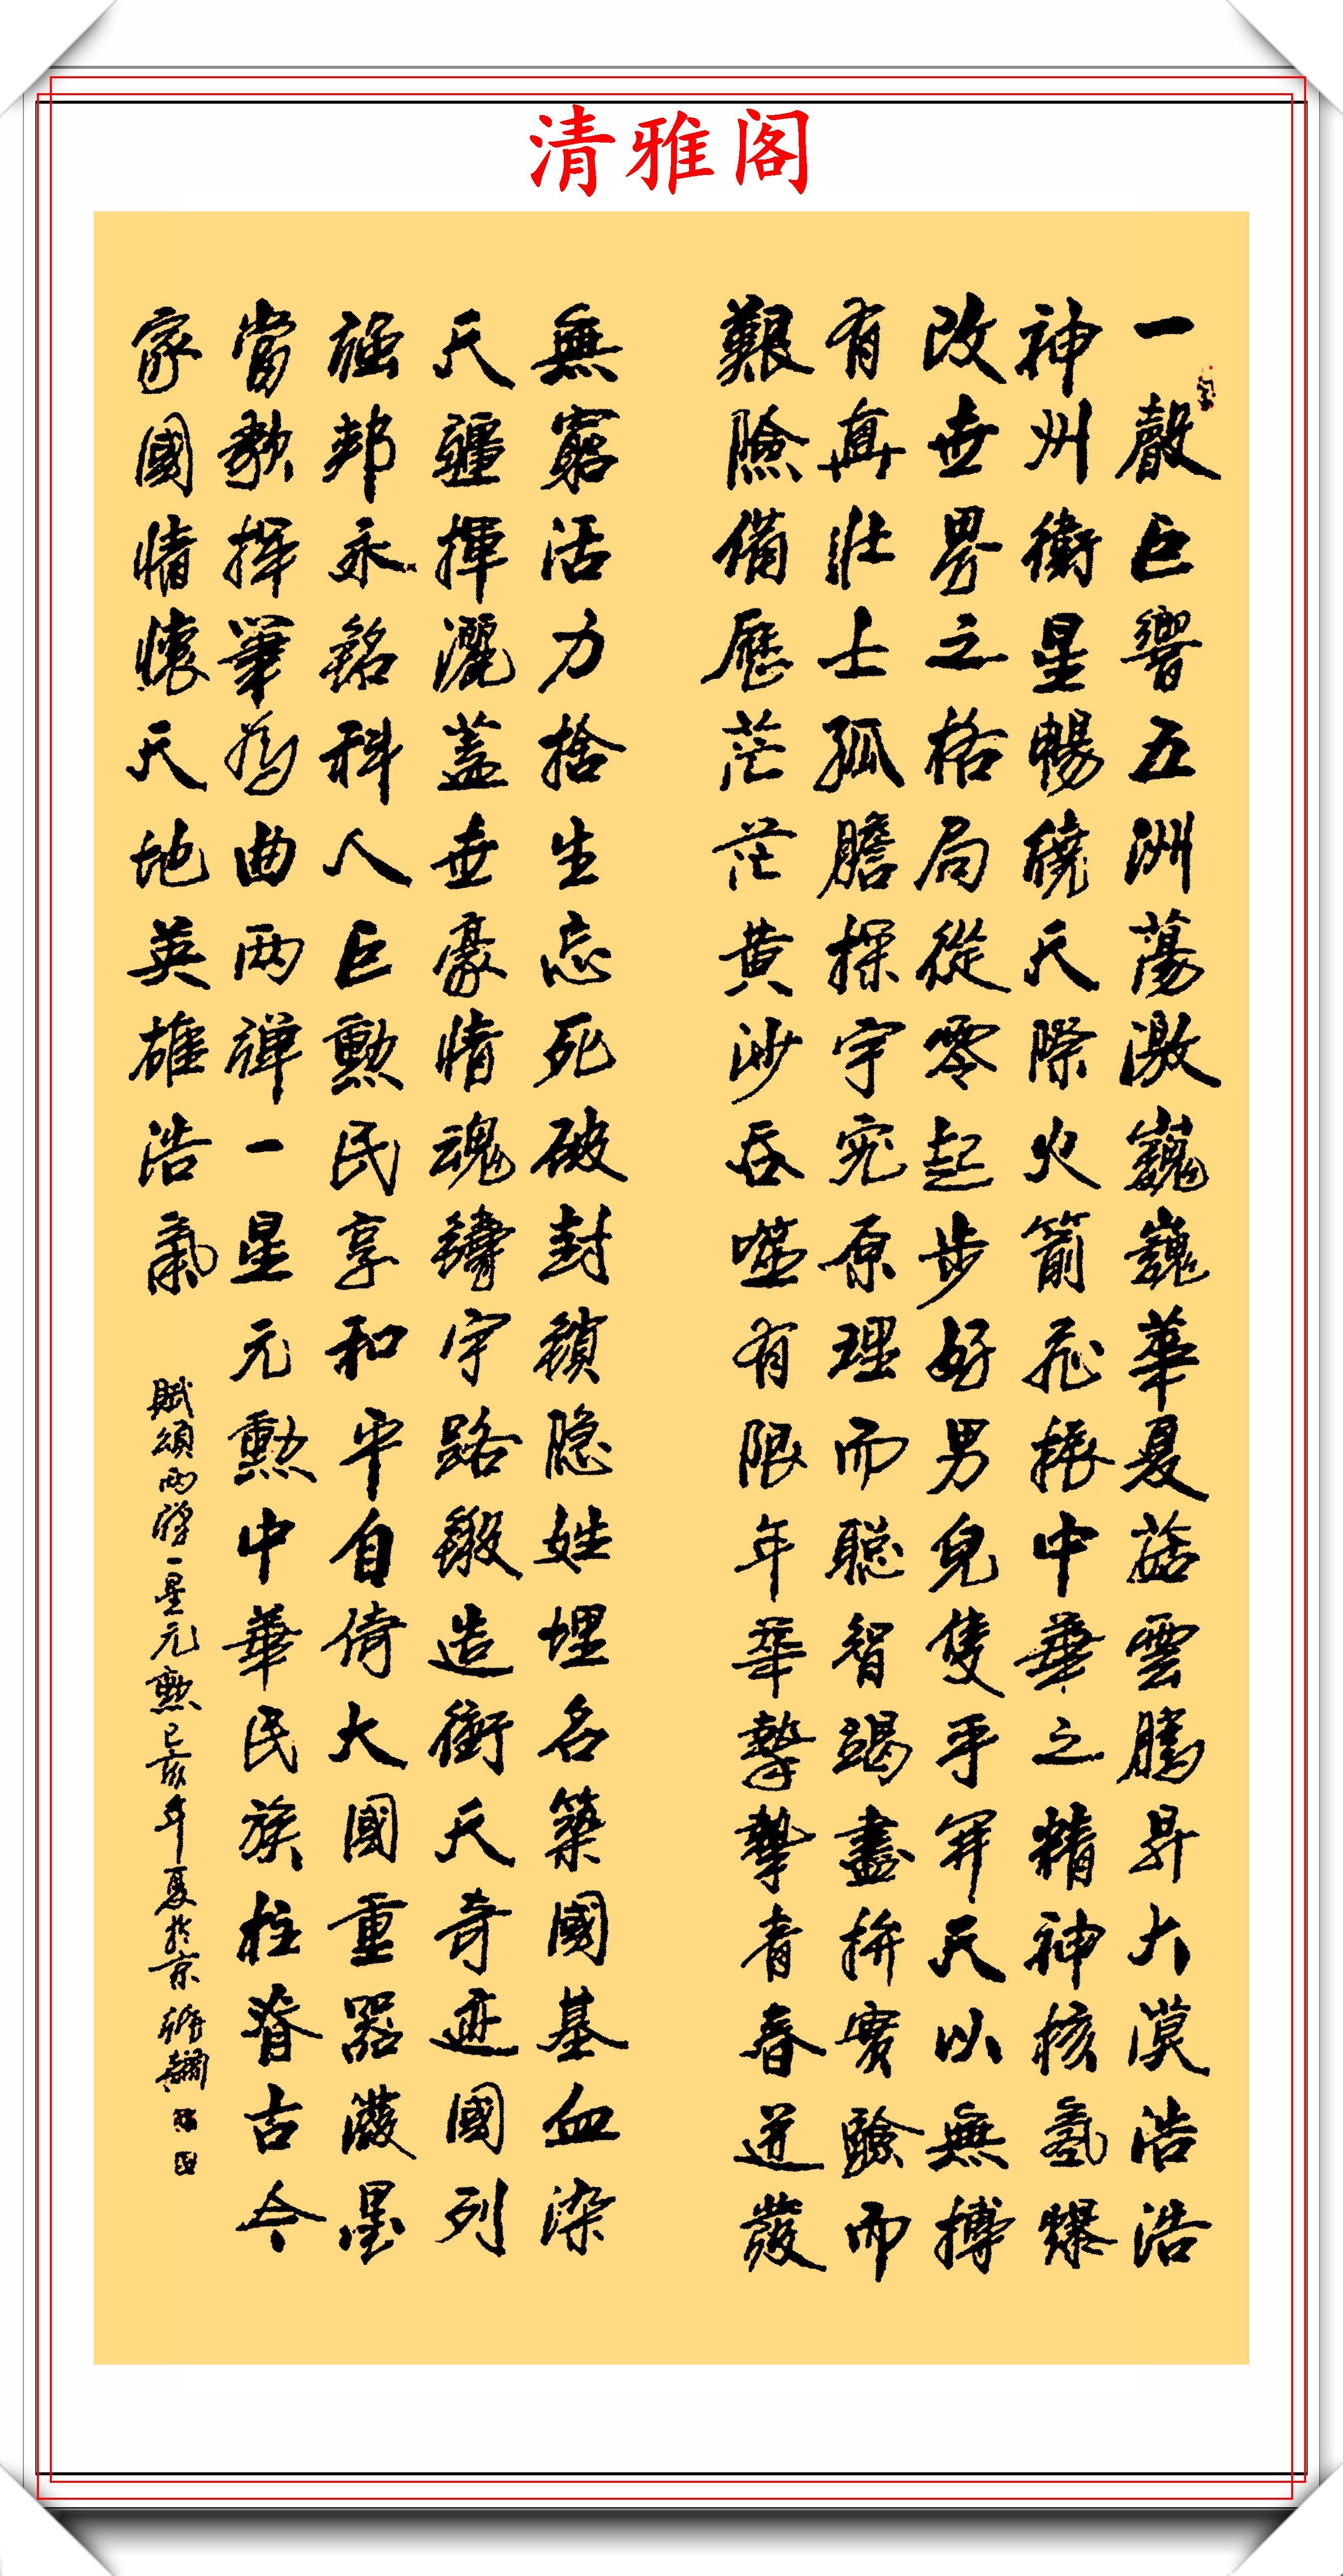 清雅阁
一聲巨響五洲蕩激巍巍華夏蘑雲騰昇大漠浩浩
神州衛星暢繞天天際火箭飛振中華之精神核氢爆
改世界之格局從零起步好男兒隻手开天以無搏
有真壯士孤膽探宇究原理而聪智竭盡拚實驗而
艱險備歷茫茫黄沙吞噬有限年華摯摯青春迸發
無窮活力捨生忘死破封鎖隐姓埋名築國基血染
天疆揮灑蓋世豪情魂鑄宇路鍛造衝天奇迹國列
强邦永銘科人巨勲民享和平自倚大國重器潑墨
當歌揮筆為曲两弹一星元勲中華民族柱脊古今
家國情懷天地英雄浩氣
賦頌两弹一星元勲己亥年夏於京